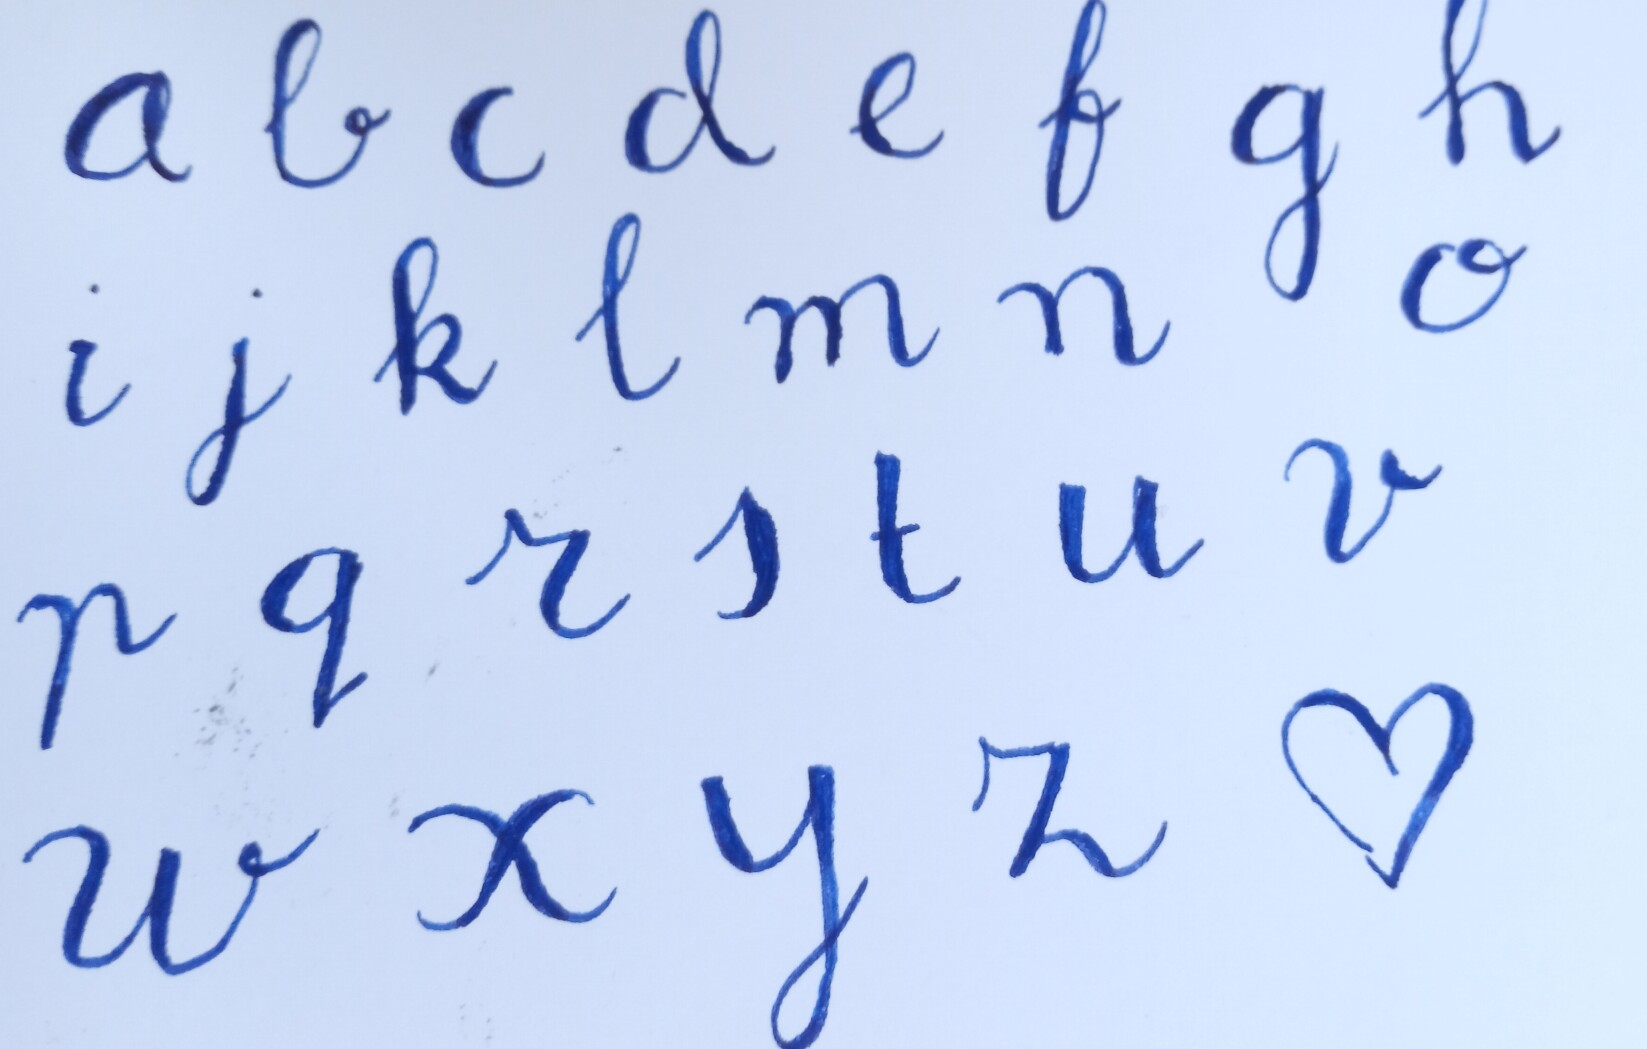 a b c d e f g h
i j k l m n o
p q r s t u v
w x y z ♡